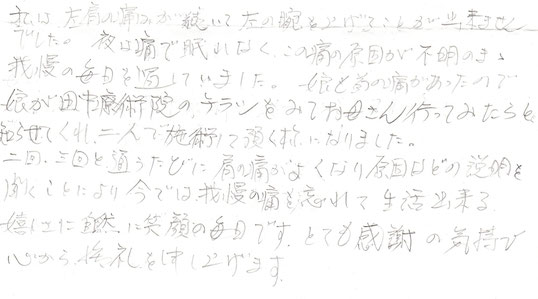 私は左肩の痛みが続いて左の腕を上げることが出来ません
でした。夜は痛で眠れなく、この痛の原因が不明のまゝ
我慢の毎日を過していました。娘も首の痛があったので
娘が田中療術院のチラシをみてお母さん行ってみたらと
知らせてくれ、二人で施術して頂く様になりました。
二回、三回と通うたびに肩の痛がよくなり原因などの説明を
頂くことにより今では我慢の痛も忘れて生活出来る
嬉しさに自然に笑顔の毎日です。とても感謝の気持び
心から御礼を申し上げます。